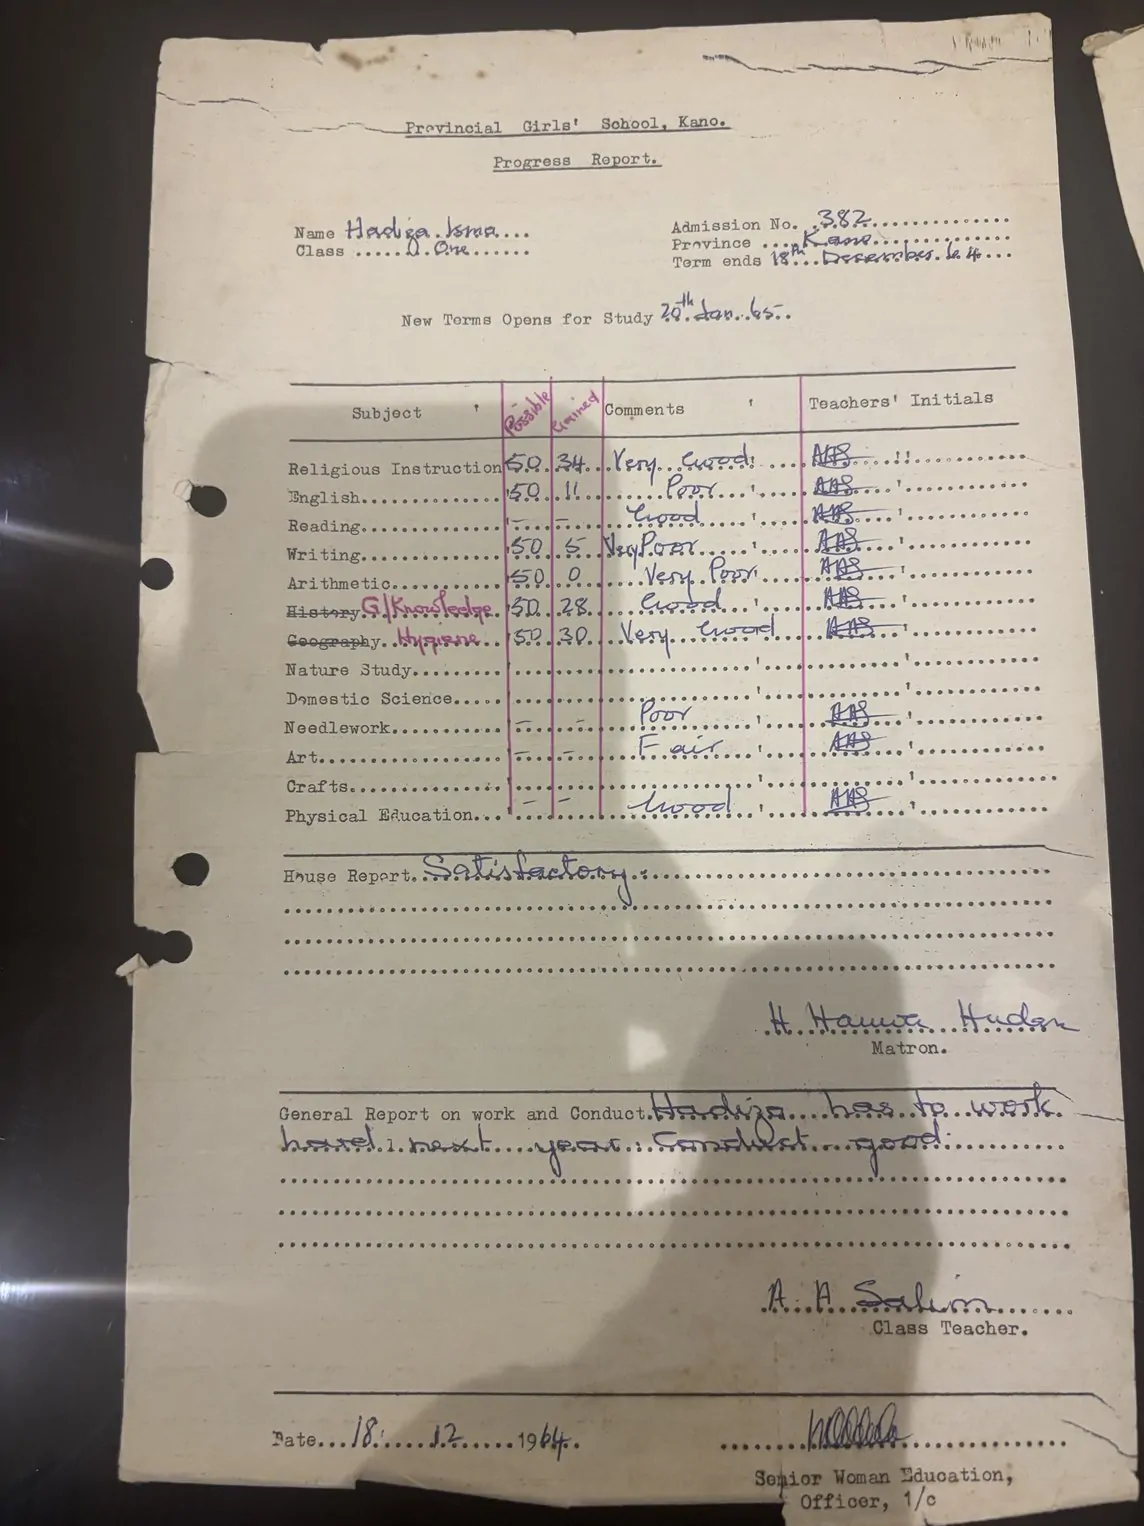 Provincial Girls' School, Kano.
Progress Report.
Name Hadiza Isma
Admission No. 382
Class One
Province Kano
Term ends 18th December 64
New Terms Opens for Study 20th Jan. 65
Subject Possible Gained Comments Teachers' Initials
Religious Instruction 50 34 Very Good AAS
English 50 11 Poor AAS
Reading - - Good AAS
Writing 50 5 Very Poor AAS
Arithmetic 50 0 Very Poor AAS
History G/Knowledge 50 28 Good AAS
Geography Hygiene 50 30 Very Good AAS
Nature Study
Domestic Science
Needlework - - Poor AAS
Art - - Fair AAS
Crafts
Physical Education - - Good AAS
House Report. Satisfactory.
H. Hauwa
Matron.
General Report on work and Conduct. Hadiza has to work
hard next year. Conduct good.
A. A. Salim
Class Teacher.
Date 18. 12 1964.
Senior Woman Education,
Officer, 1/c